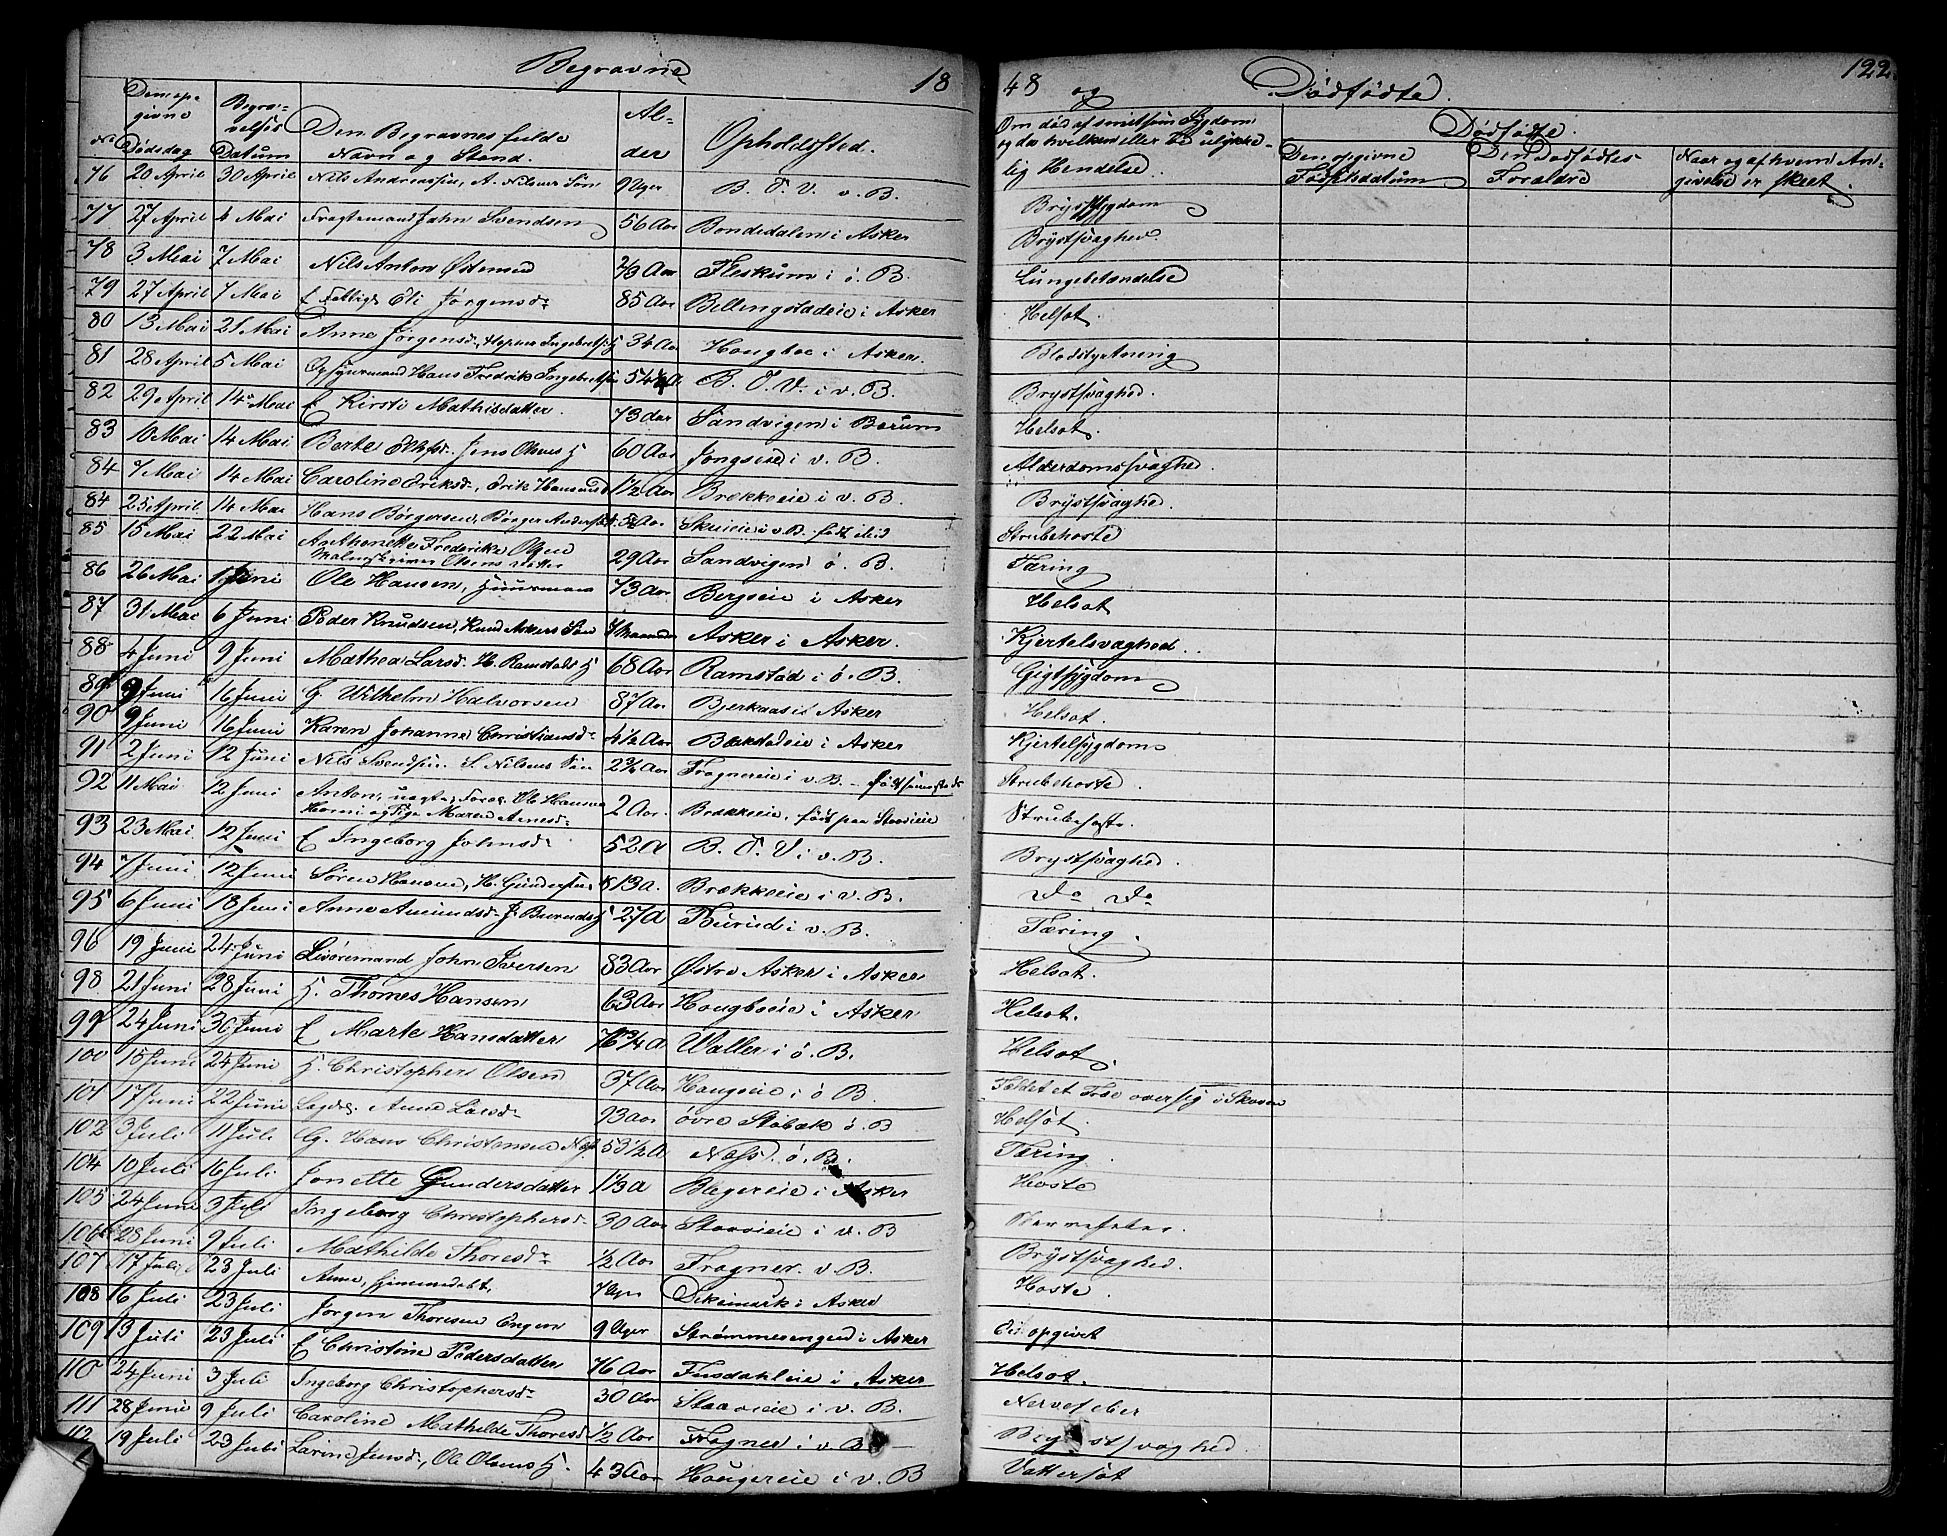 Begravne 1848 og Dødfødte. 122
No Den opgivne Dødsdag Begravelses Datum Den Begravnes fulde Navn og Stand. Alder Opholdssted. Om død af smitsom Sygdom og da hvilken eller ved ulykkelig Hendelse. Dødfødte. Den opgivne Fødselsdatum Den Dødfødtes Forældre Naar og af hvem Angivelse er skeet.
76 20 April 30 April Nils Andreassen, A. Nilsens Søn 9 Uger B. T. V. v. B. Brystsygdom
77 27 April 4 Mai Fragtemand John Svendsen 56 Aar Bondedalen i Asker Brystsvaghed.
78 3 Mai 7 Mai Nils Anton Østensen 2/3 Aar Fleskum i ö. B. Lungebetændelse
79 27 April 7 Mai E Fattigl. Eli Jörgensd. 85 Aar Bellingstadeie i Asker Helsot.
80 13 Mai 21 Mai Anne Jörgensd., Ingebretss H 34 Aar Hougboe i Asker. Blodstyrtning
81 28 April 5 Mai Opsynsmand Hans Fredrik Ingebretsen 54 1/2 A B. T. V. i v. B. Brystsvaghed.
82 29 April 14 Mai E Kirsti Mathisdatter. 73 Aar Sandvigen i Bærum Helsot.
83 10 Mai 14 Mai Berte Jens Olsens H 60 Aar Jongseie i v. B. Alderdomssvaghed.
84 7 Mai 14 Mai Caroline Eriksd., Erik Hansens d 1 1/2 Aar Brækkeeie i v. B. Brystsvaghed.
84 25 April 14 Mai Hans Börgersen, Börger Anders Aar Skuieie i v. B. født Strubehoste
85 15 Mai 22 Mai Anthonette Frederikke Olsen Olsens datter 29 Aar Sandvigen ö. B. Tæring
86 26 Mai 1 Juni Ole Hansen, Huusmand 73 Aar Bergseie i Asker Helsot
87 31 Mai 6 Juni Peder Knudsen, Knud Askers Søn 4 Maaneder Asker i Asker. Kjertelsvaghed.
88 4 Juni 9 Juni Mathea Larsd. H. Ramstads H 68 Aar Ramstad i ö. B. Gigtsygdom
89 9 Juni 16 Juni G. Wilhelm Halvorsen 87 Aar Bjerkaas i Asker Helsot.
90 9 Juni 16 Juni Karen Johanne Christiansd. 4 1/2 Aar Bækstadeie i Asker Kjertelsygdom
91 2 Juni 12 Juni Nils Svendsen S. Nilsens Søn 2 3/4 Aar Frognereie i v. B. Strubehoste.
92 11 Mai 12 Juni Anton, uægte, Foræ. Ole Hansen Horni og Pige Maren Arnesd. 2 Aar. Brækkeeie, født paa Stovieie Strubehoste.
93 23 Mai 12 Juni E Ingeborg Johnsd. 52 A B. T. V i v. B. Brystsvaghed.
94 7 Juni 12 Juni Søren Hansen, H. Gundersens 13 a. Brækkeeie i v. B. Do Do
95 6 Juni 18 Juni Anne Amundsd. J. Buruds H 27 A Burud i v. B. Tæring.
96 19 Juni 24 Juni Livöremand John Iversen 83 Aar Østre Asker i Asker Helsot.
98 21 Juni 28 Juni H. Thomes Hansen 63 Aar Hougboeie i Asker Helsot.
99 24 Juni 30 Juni E Marte Hansdatter 76 3/4 A Waller i ö. B. Helsot.
100 15 Juni 24 Juni H. Christopher Olsen 37 Aar Haugeie i ö B. Fældet et Træ over sig i Skoven
101 17 Juni 22 Juni Lægds. Anne Larsd. 93 aar övre Stabæk ö. B Helsot.
102 3 Juli 11 Juli G. Hans Christensen Næss 53 1/2 A Næss. ö. B. Tæring.
104 10 Juli 16 Juli Jonette Gundersdatter 1 1/3 a Blegereie i Asker Hoste
105 24 Juni 3 Juli Ingeborg Christophersd. 30 Aar Stovieie i v. B Nervefeber.
106 28 Juni 9 Juli Mathilde Thoresd. 1/2 Aar Frogner. v. B. Brystsvaghed.
107 17 Juli 23 Juli Anne, hjemmedøbt, 7 Uger Dikemark i Asker Hoste.
108 16 Juli 23 Juli Jörgen Thoresen Engen 9 Uger Strömmesengen i Asker Ei opgivet
109 13 Juli 23 Juli E Christine Pedersdatter 76 Aar Fusdahleie i Asker Helsot.
110 24 Juni 3 Juli Ingeborg Christophersd. 30 Aar Stovieie i v. B. Nervefeber
111 28 Juni 9 Juli Caroline Mathilde Thoresd 1/2 Aar Frogner i v B Brystsvaghed.
112 19 Juli 23 Juli Larine Jensd., Ole Olsens H. 43 Aar Hougereie i v. B Vattersot